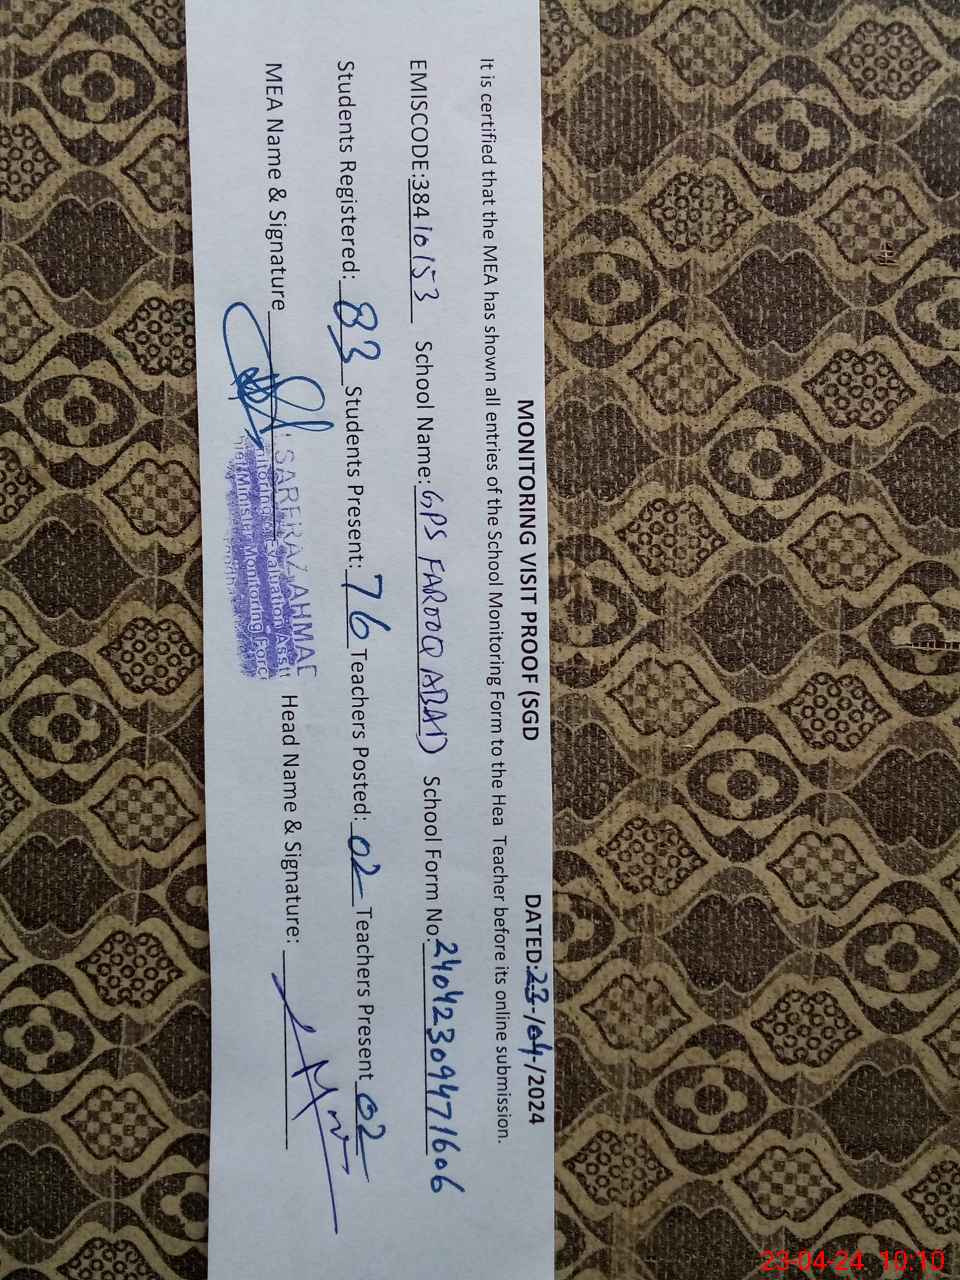 MONITORING VISIT PROOF (SGD DATED:23-/04/2024
It is certified that the MEA has shown all entries of the School Monitoring Form to the Hea Teacher before its online submission.
EMISCODE:38410153 School Name: GPS FAROOQ ABAD School Form No: 24042309471606
Students Registered: 83 Students Present: 76 Teachers Posted: 02 Teachers Present 02
MEA Name & Signature Head Name & Signature:
SARFRAZ AHMAD
Monitoring & Evaluation Asstt
Chief Minister Monitoring Force
23-04-24 10:10